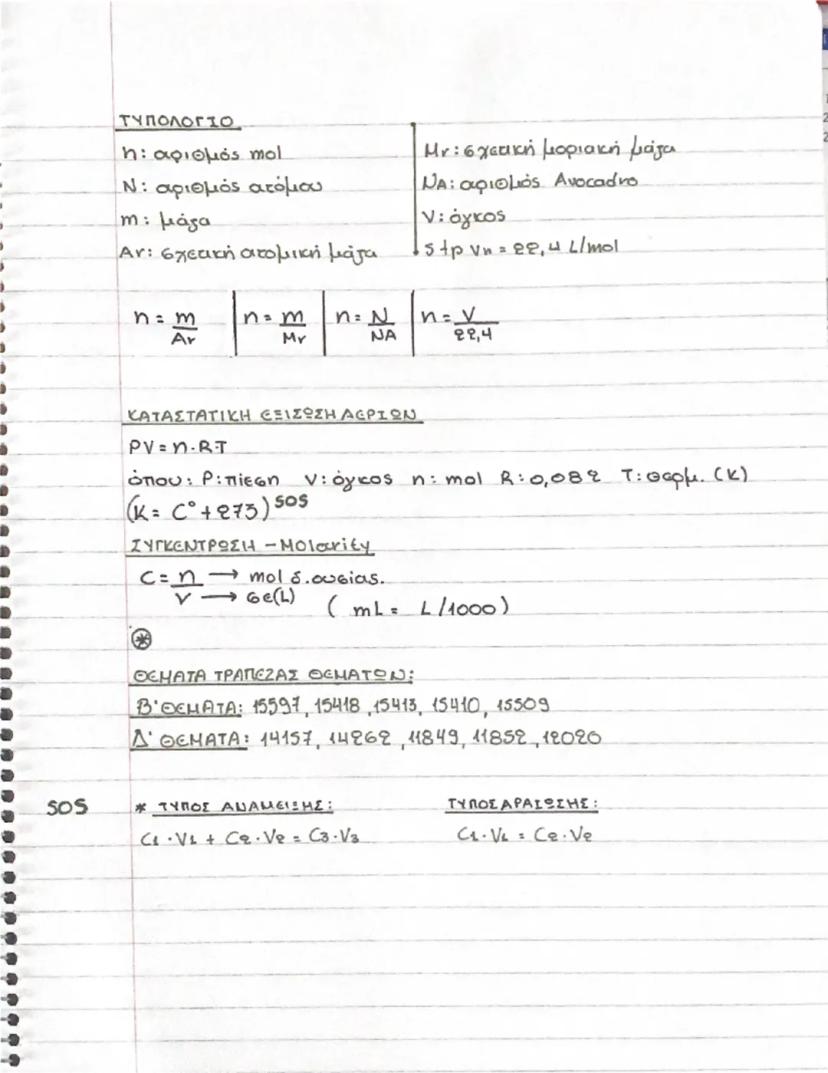 ΤΥΠΟΛΟΓΙΟ
n: αριθμός mol
N: αριθμός ατόμου
m: μάζα
Ar: σχετική ατομική μάζα
Mr: σχετική μοριακή μάζα
NA: αριθμός Avocadro
V: όγκος
stp Vn = 22,4 L/mol
n = m/Ar | n = m/Mr | n = N/NA | n = V/22,4
ΚΑΤΑΣΤΑΤΙΚΗ ΕΞΙΣΩΣΗ ΑΕΡΙΩΝ
PV = n·R·T
όπου: P: πίεση V: όγκος n: mol R: 0,082 T: θερμ. (K)
(K = C° + 273) SOS
ΣΥΓΚΕΝΤΡΩΣΗ – Molarity
C = n → mol δ. ουσίας.
V → σε (L) ( mL = L/1000 )
*
ΘΕΜΑΤΑ ΤΡΑΠΕΖΑΣ ΘΕΜΑΤΩΝ:
Β' ΘΕΜΑΤΑ: 15597, 15418, 15413, 15410, 15509
Δ' ΘΕΜΑΤΑ: 14157, 14262, 11849, 11852, 12020
SOS * ΤΥΠΟΣ ΑΝΑΜΕΙΞΗΣ: ΤΥΠΟΣ ΑΡΑΙΩΣΗΣ:
C1·V1 + C2·V2 = C3·V3 C1·V1 = C2·V2